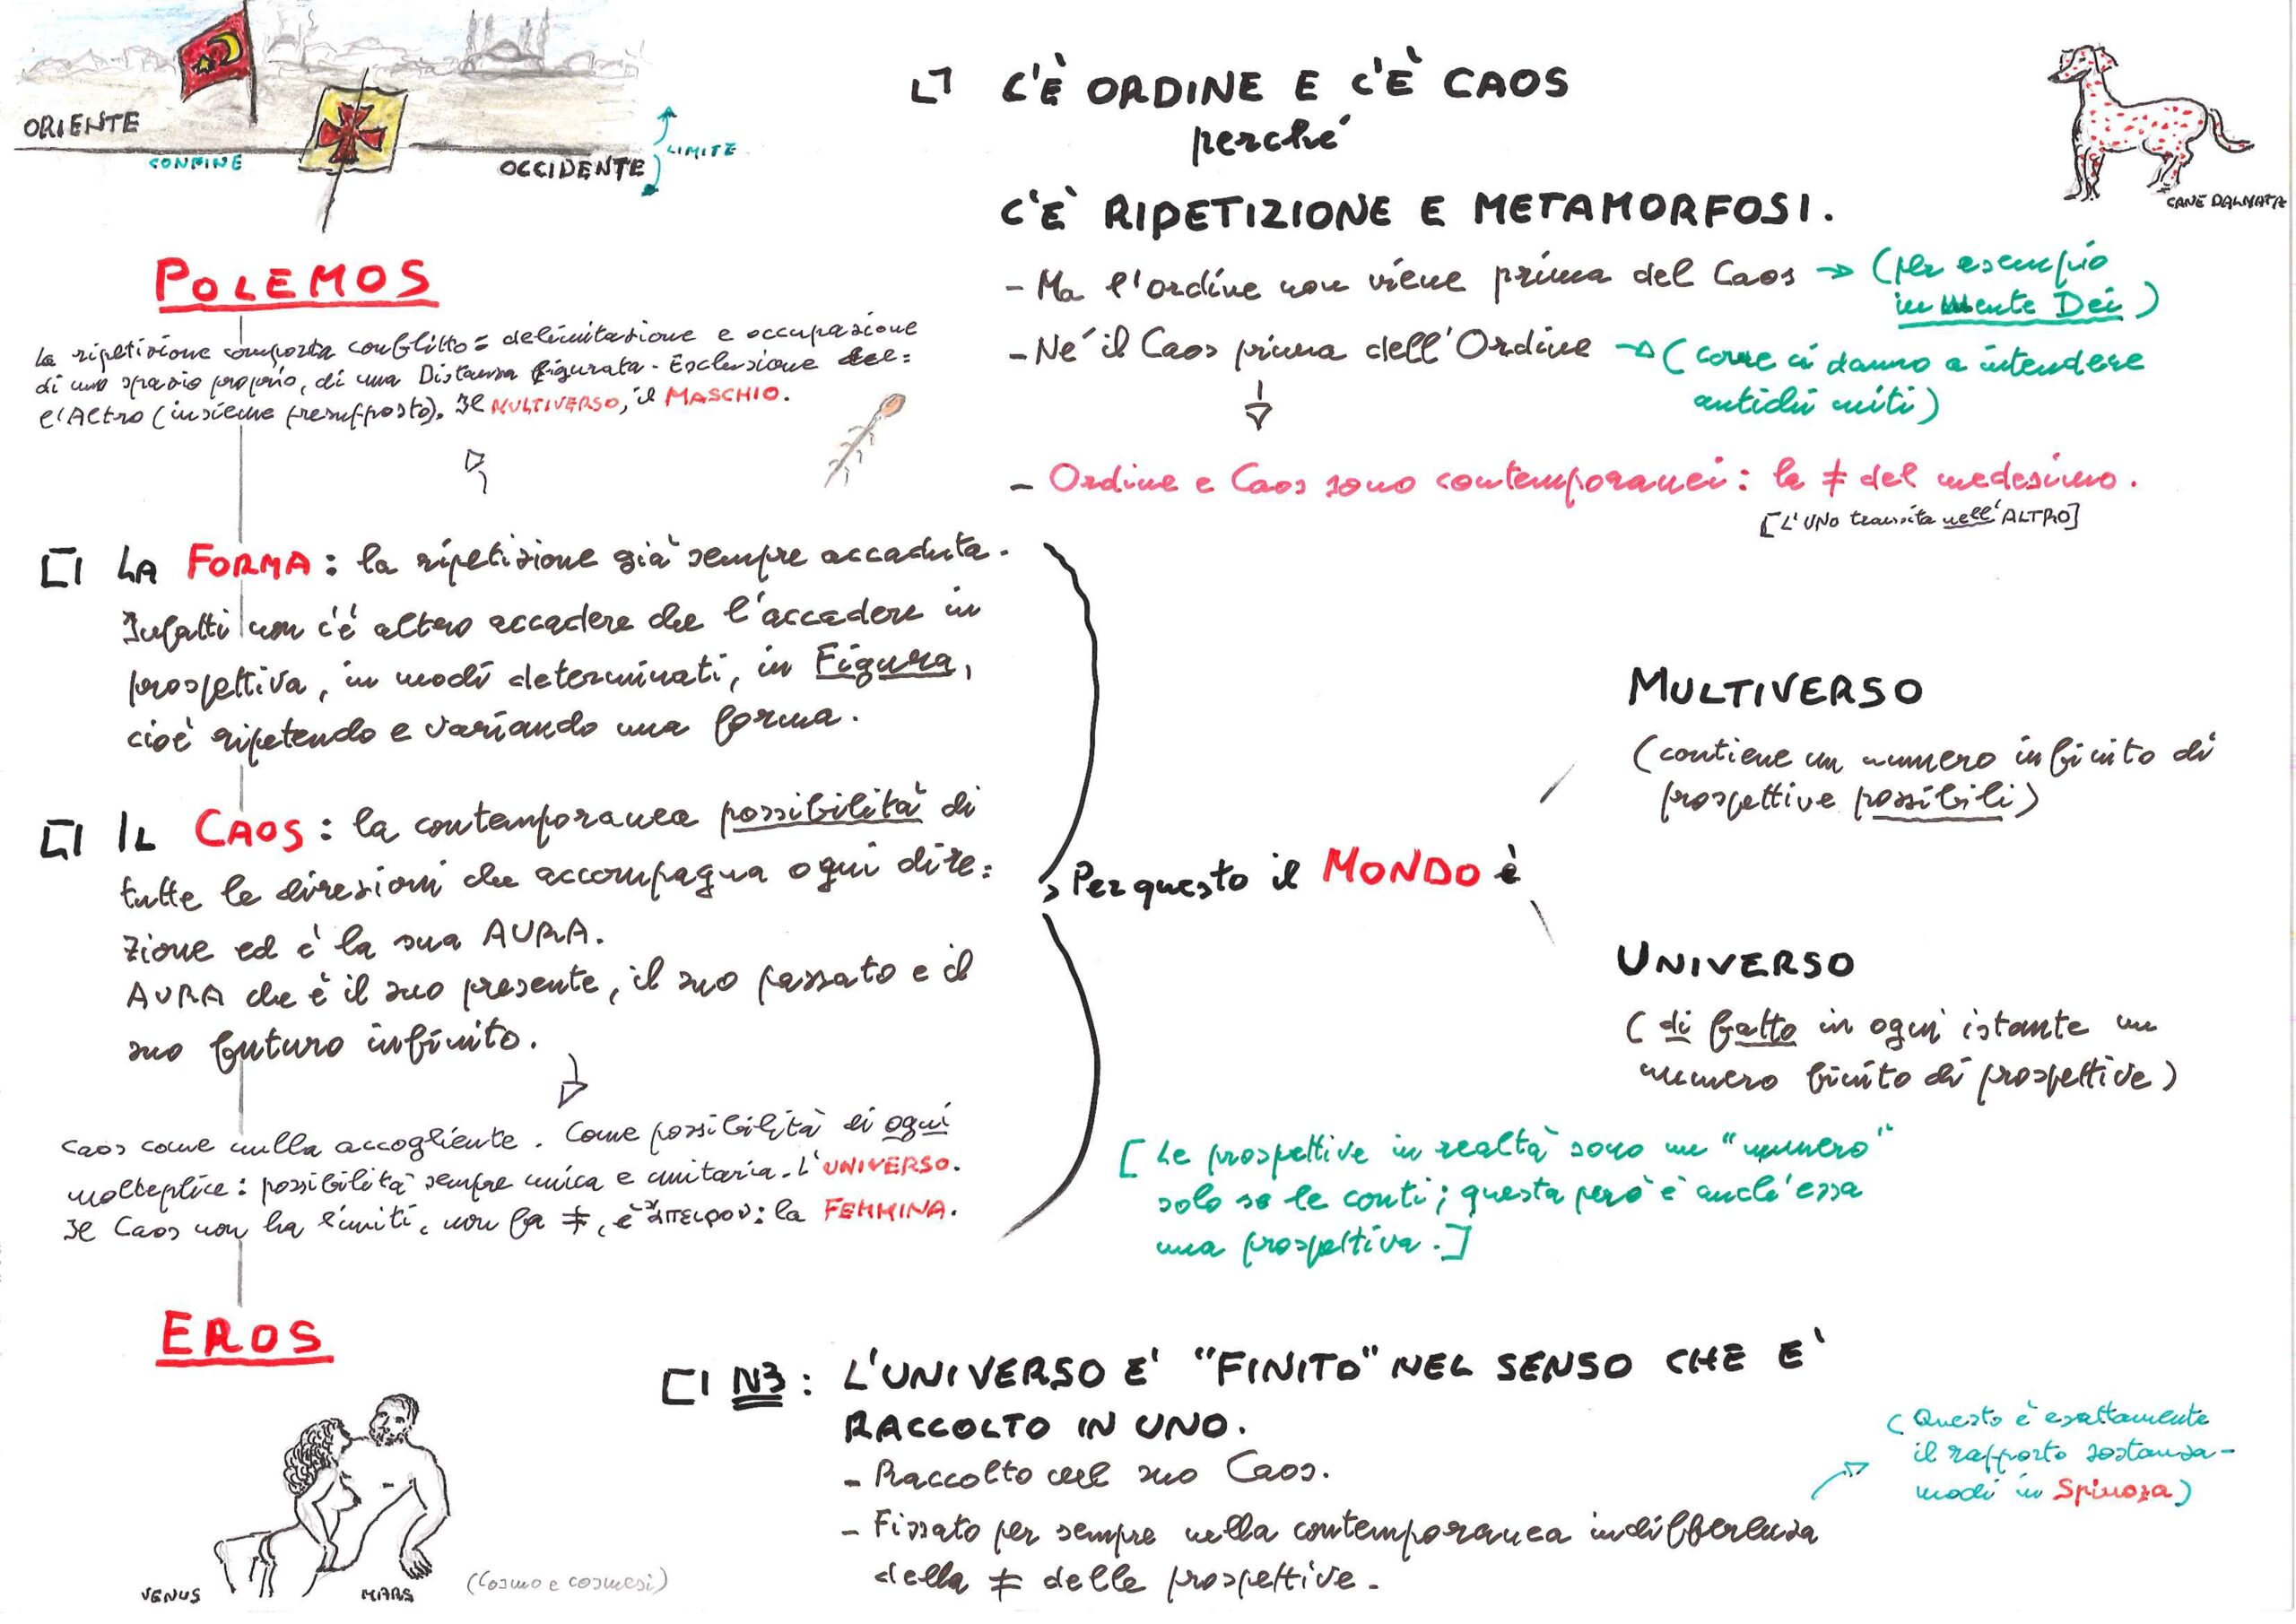 ORIENTE
CONFINE
OCCIDENTE
LIMITE
C'È ORDINE E C'È CAOS
perché
C'È RIPETIZIONE E METAMORFOSI.
- Ma l'ordine non viene prima del Caos → (per esempio
in mente Dei)
- Né il Caos prima dell'Ordine → (come ci danno a intendere
antichi miti)
- Ordine e Caos sono contemporanei: la ≠ del medesimo.
[L'UNO transita nell'ALTRO]
CANE DALMATA
POLEMOS
La ripetizione comporta conflitto = delimitazione e occupazione
di uno spazio proprio, di una Distanza figurata - Esclusione del=
l'Altro (insieme presupposto). Il MULTIVERSO, il MASCHIO.
LA FORMA: la ripetizione già sempre accaduta.
Infatti non c'è altro accadere che l'accadere in
prospettiva, in modi determinati, in Figura,
cioè ripetendo e variando una forma.
IL CAOS: la contemporanea possibilità di
tutte le direzioni che accompagna ogni dire=
zione ed è la sua AURA.
AURA che è il suo presente, il suo passato e il
suo futuro infinito.
Caos come nulla accogliente. Come possibilità di ogni
molteplice: possibilità sempre unica e unitaria. L'UNIVERSO.
Il Caos non ha limiti, non fa ≠, è ἄπειρον: la FEMMINA.
EROS
VENUS
MARS
(Cosmo e cosmesi)
Per questo il MONDO è
MULTIVERSO
(contiene un numero infinito di
prospettive possibili)
UNIVERSO
(di fatto in ogni istante un
numero finito di prospettive)
[Le prospettive in realtà sono un "numero"
solo se le conti; questa però è anch'essa
una prospettiva.]
N3: L'UNIVERSO E' "FINITO" NEL SENSO CHE E'
RACCOLTO IN UNO.
- Raccolto nel suo Caos.
- Fissato per sempre nella contemporanea indifferenza
della ≠ delle prospettive.
(Questo è esattamente
il rapporto sostanza-
modi in Spinoza)